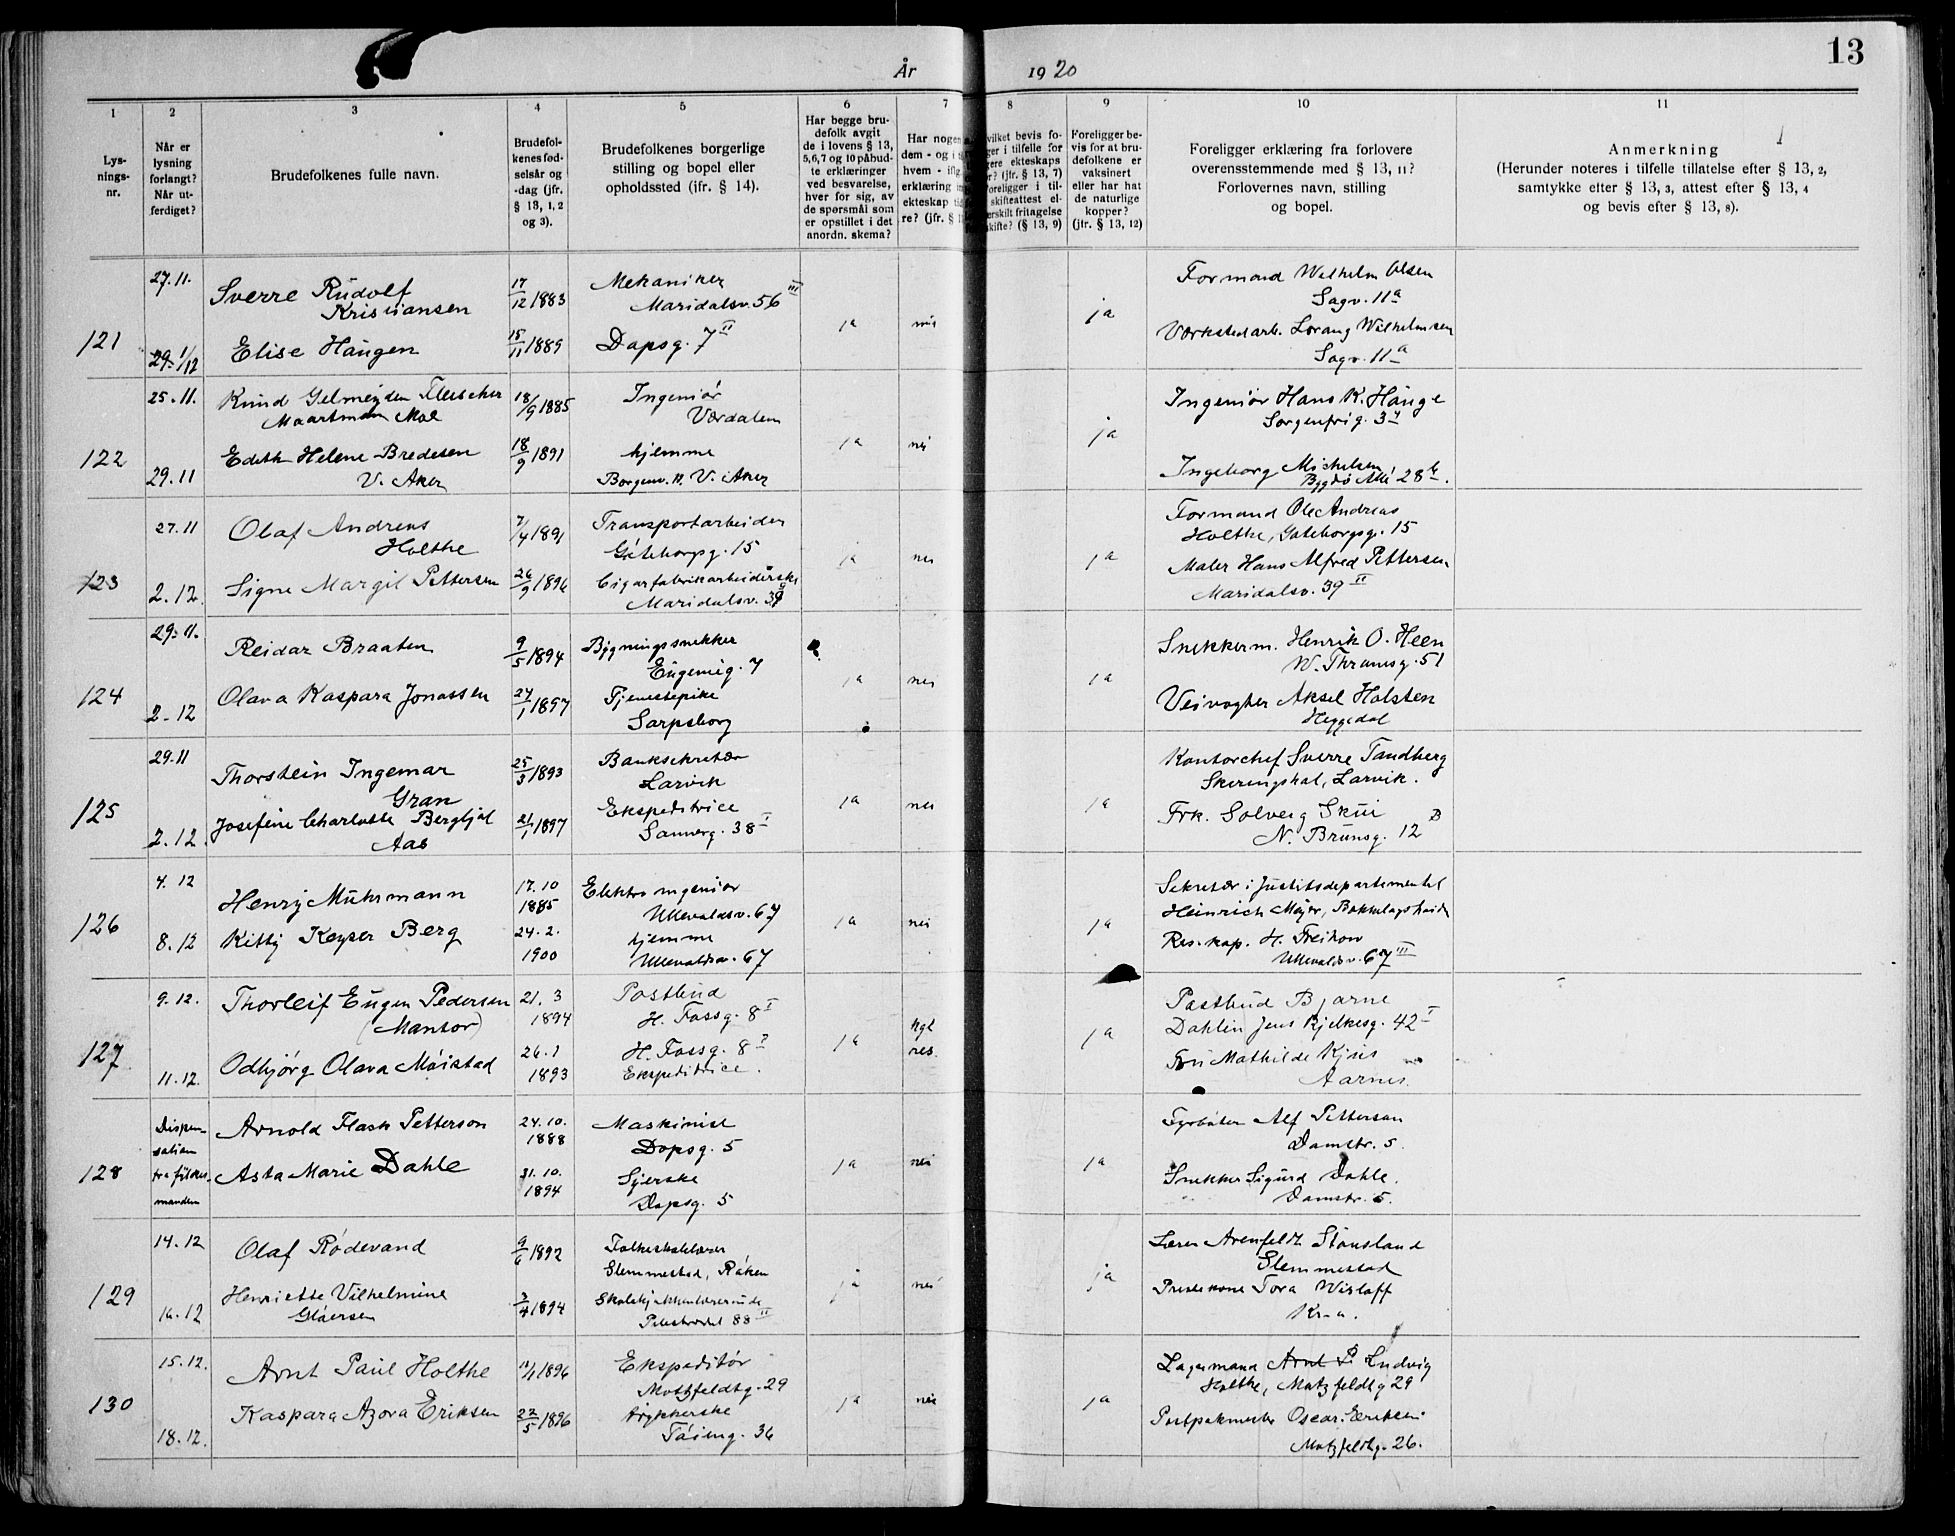 13
År 1920
1 2 3 4 5 6 7 8 9 10 11
Lysnings-nr.
Når er lysning forlangt? Når utferdiget?
Brudefolkenes fulle navn.
Brudefolkenes fødselsår og -dag (jfr. § 13, 1, 2 og 3).
Brudefolkenes borgerlige stilling og bopel eller opholdssted (ifr. § 14).
Har begge brudefolk avgit de i lovens § 13, 5,6,7 og 10 påbudte erklæringer ved besvarelse, hver for sig, av de spørsmål som er opstillet i det anordn. skema?
Foreligger bevis for at brudefolkene er vaksinert eller har hat de naturlige kopper? (jfr. § 13, 12)
Foreligger erklæring fra forlovere overensstemmende med § 13, 11? Forlovernes navn, stilling og bopel.
Anmerkning
(Herunder noteres i tilfelle tillatelse efter § 13, 2, samtykke etter § 13, 3, attest efter § 13, 4 og bevis efter § 13, 8).
121
27.11.
Sverre Rudolf Kristiansen
17/12 1883
Mekaniker
Maridalsv. 56 III
Formand Wilhelm Olsen
Sagv. 11a
29. 1/12
Elise Haugen
15/11 1889
Dopsg. 7 II
ja
ja
Verkstedarb. Lorang Wilhelmsen
Sagv. 11a
122
25.11.
Knud Gelmeyden Fleischer
Maartman Moe
18/9 1885
Ingeniør
Verdalen
Ingeniør Hans K. Hauge
Sorgenfrig. 3
29.11
Edith Helene Bredesen
V. Aker
18/9 1891
hjemme
Borgenv. 11. V. Aker
ja nei
ja
Ingeborg Michelsen
Bygdø Allé 28
123
27.11
Olaf Andreas Holthe
7/4 1891
Transportarbeider
Göteborgg. 15
ja nei
ja
Formand Ole Andreas
Holthe, Gøteborgg. 15
2.12.
Signe Margit Pettersen
26/9 1896
Cigarfabrikarbeiderske
Maridalsv. 39
Maler Hans Alfred Pettersen
Maridalsv. 39 II
124
29.11.
Reidar Braaten
9/5 1894
Bygningssnekker
Eugenieg. 7
Snekkerm. Henrik O. Heen
W. Thranesg. 51
2.12
Olava Kaspara Jonassen
24/1 1897
Tjenestepike
Sarpsborg
ja nei
ja
Veivogter Aksel Holsten
Heggedal
125
29.11
Thorstein Ingemar Gran
25/3 1893
Banksekretær
Larvik
Kontorchef Sverre Tandberg
Larvik.
2.12.
Josefine Charlotte Bergljot
Aas
21/1 1897
Ekspeditrice
Sannerg. 38 I
ja nei
ja
Frk. Solveig Skui
N. Brunsg. 12 B
126
4.12
Henry Muhrmann
17.10
1885
Elektroingeniør
Ullevaldsv. 67
Sekretær i Justitsdepartementet
Heinrich Meyer,
8.12
Kitty Keyser Berg
24.2.
1900
hjemme
Ullevaldsv. 67
ja nei
ja
Res. kap. H. Freihow
Ullevaldsv. 67 III
127
9.12.
Thorleif Eugen Pedersen
(Mansor)
21.3
1894
Postbud
H. Fossg. 8 I
Postbud Bjarne
Dahlin Jens Bjelkesg. 42 I
11.12.
Odbjørg Olava Møistad
26.1
1893
H. Fossg. 8
Ekspeditrice.
ja
kgl
res.
ja
Fru Mathilde Kjus
Aarnes.
128
Dispensation
fra fylkesmanden
Arnold Flash Petterson
24.10.
1888
Maskinist
Dopsg. 5
Fyrbøter Alf Petterson
Damstr. 5.
Asta Marie Dahle
31.10.
1894
Syerske
Dopsg. 5
ja nei
ja
Snekker Sigurd Dahle.
Damstr. 5.
129
14.12
Olaf Rødevand
9/6 1892
Folkeskolelærer
Slemmestad, Røken
Lærer Arenfeldt Stousland
Slemmestad
16.12
Henriette Vilhelmine
Gløersen
3/4 1894
Skolekjøkkenlærerinde
Pilestrædet 88 II
ja nei
ja
Prestekone Tora Wisløff
Kr-a.
130
15.12.
Arnt Paul Holthe
1896
Ekspeditør
Motzfeldtg. 29
Lagermand Arnt P. Ludvig
Holthe, Motzfeldtg 29
18.12.
Kaspara Azora Eriksen
22/5 1896
Trykkerske
Tøieng. 36
ja nei
ja
Postpakmester Oscar Eriksen
Motzfeldtg. 26.